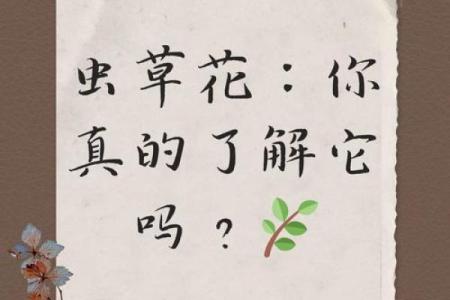 虫草花：你
真的了解它
吗？